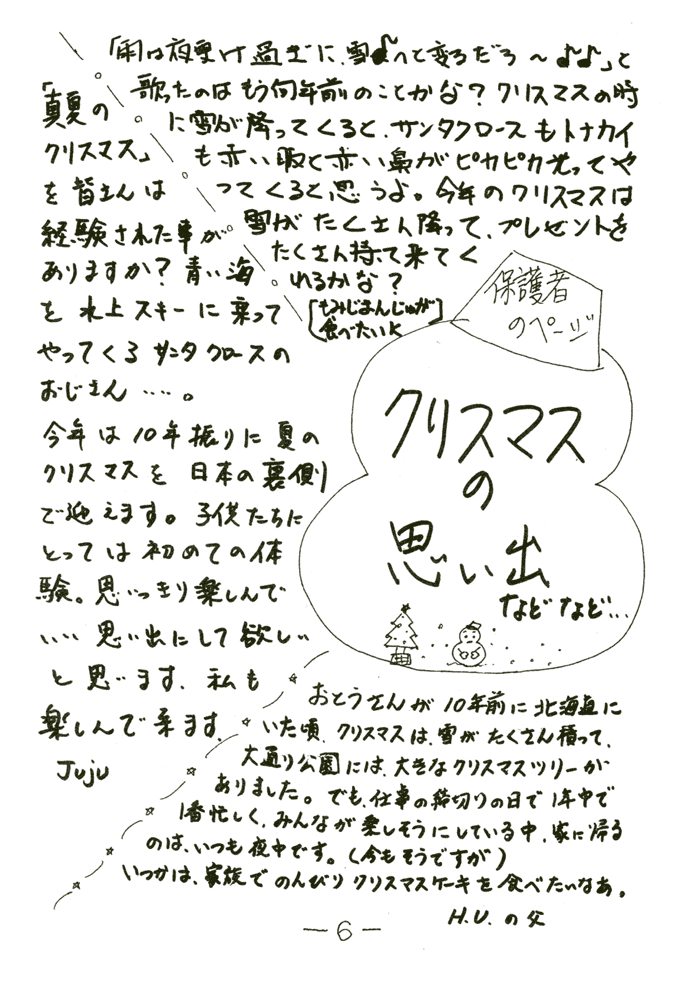 「雨は夜更け過ぎに、雪♪へと変るだろ〜♪♪」と
歌ったのはもう何年前のことかな?クリスマスの時
に雪が降ってくると、サンタクロースもトナカイ
も赤い服と赤い鼻がピカピカ光ってや
ってくると思うよ。今年のクリスマスは
雪がたくさん降って、プレゼントを
たくさん持って来てく
れるかな?
[もみじまんじゅうが
食べたいK]
「真夏の
クリスマス」
を皆さんは
経験された事が
ありますか?青い海
を水上スキーに乗って
やってくるサンタクロースの
おじさん……。
今年は10年振りに夏の
クリスマスを日本の裏側
で迎えます。子供たちに
とっては初めての体
験。思いっきり楽しんで
いい思い出にして欲しい
と思います。私も
楽しんで来ます。
Juju
保護者
のページ
クリスマス
の
思い出
などなど…
おとうさんが10年前に北海道に
いた頃、クリスマスは、雪がたくさん積って、
大通り公園には、大きなクリスマスツリーが
ありました。でも、仕事の締切りの日で1年中で
1番忙しく、みんなが楽しそうにしている中、家に帰る
のは、いつも夜中です。(今もそうですが)
いつかは、家族でのんびりクリスマスケーキを食べたいなあ。
H.U.の父
—6—